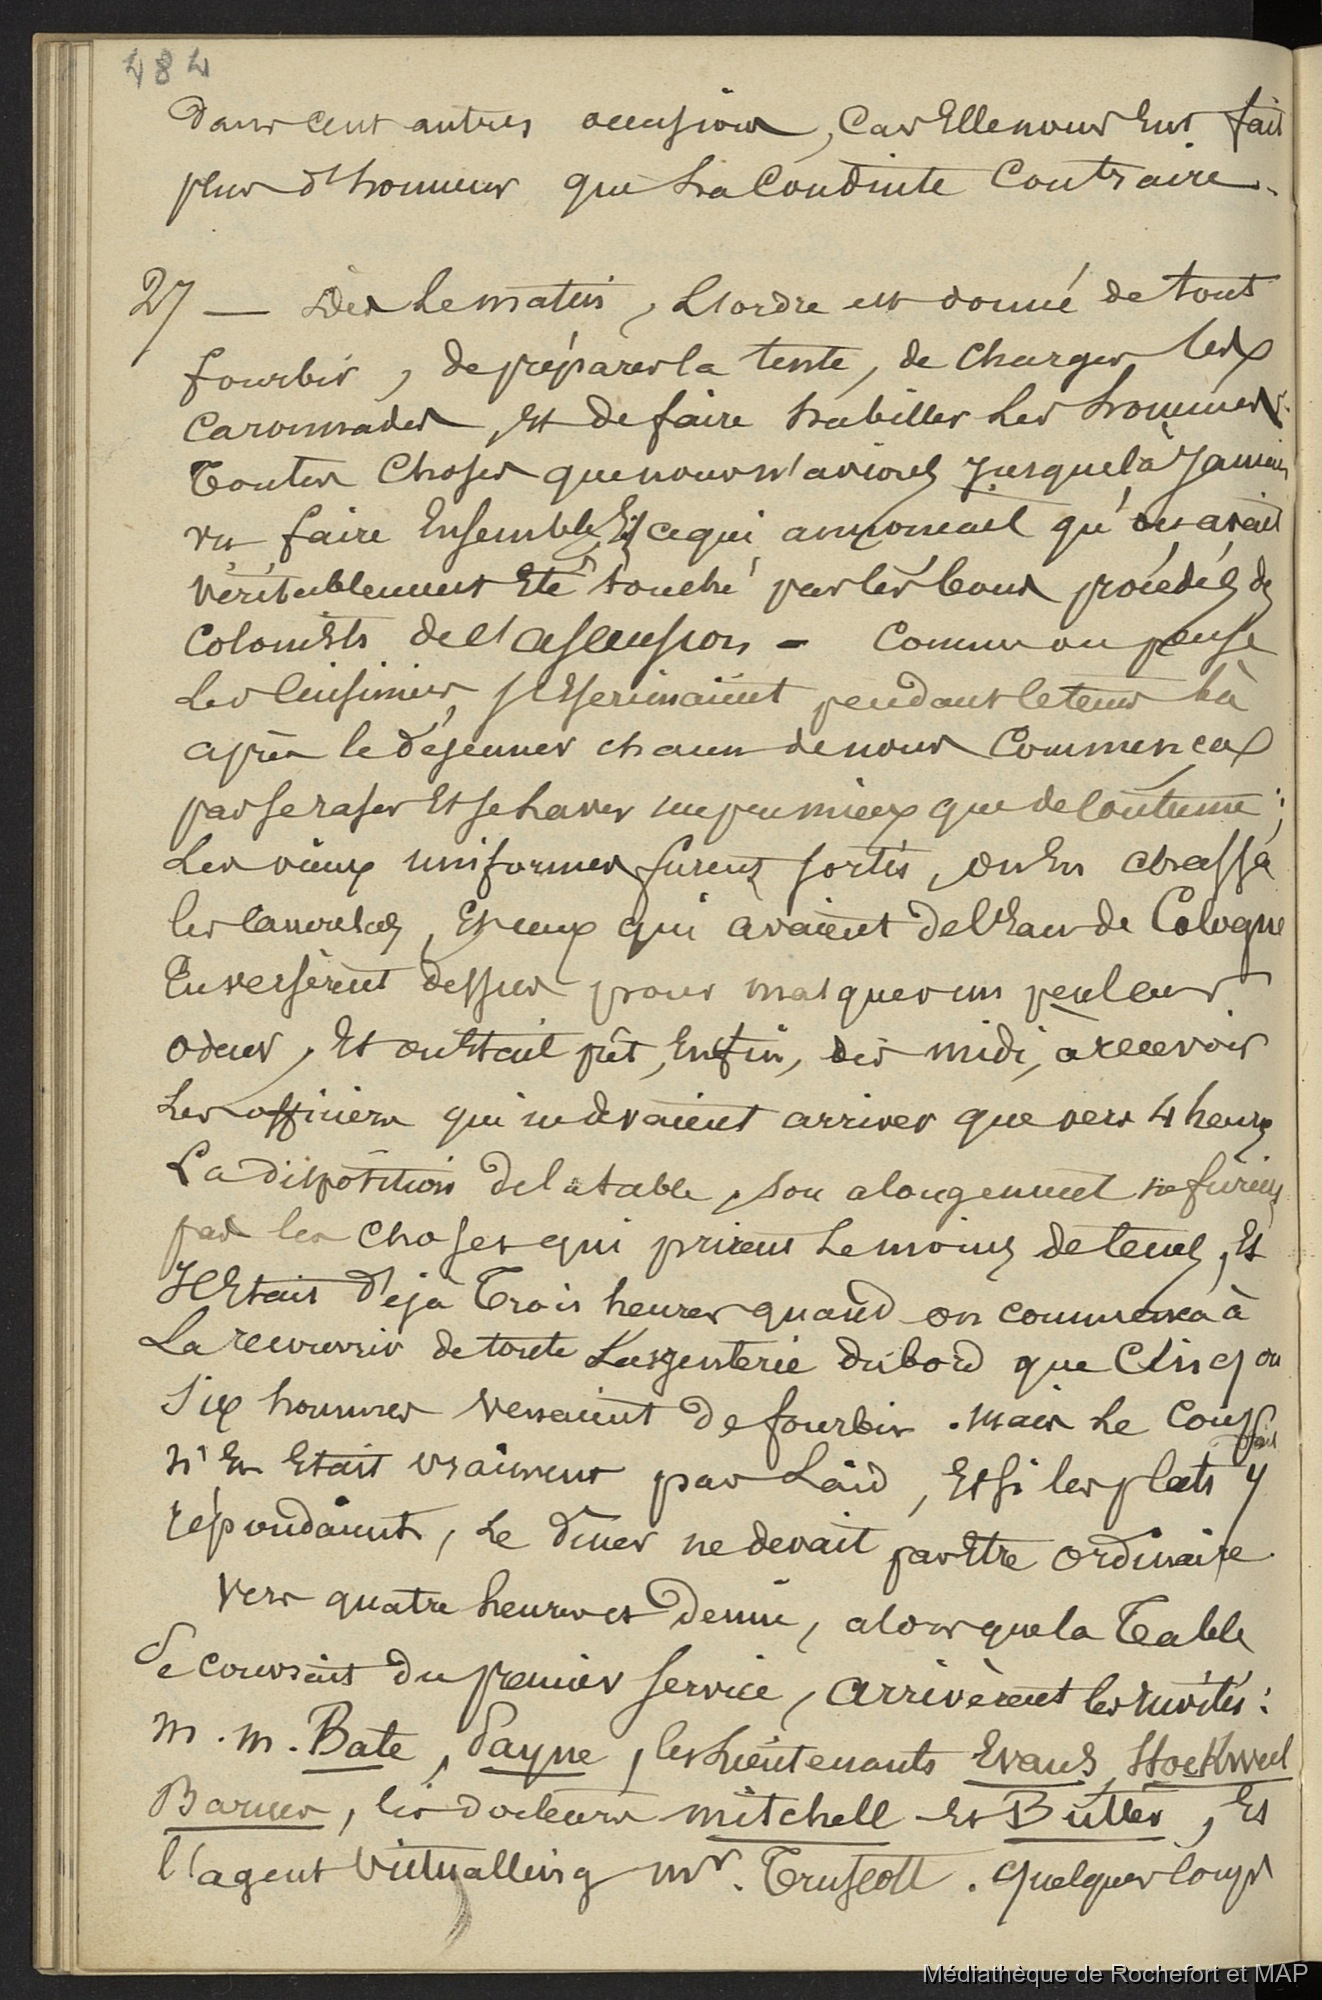 484
dans cent autres occasions, car Elle nous Eut fait
plus d'honneur que la Conduite Contraire.
27 — Dès le matin, l'ordre est donné de tout
fourbir, de préparer la tente, de charger les
caronnades, Et de faire habiller les hommes.
Toutes Choses que nous n'avions jusque là jamais
vu faire Ensemble, Et ce qui annonçait qu'on avait
véritablement Eté touché par les bons procédés des
colonists de l'ascension - Comme on pense
les Cuisiniers, s'Escrimaient pendant le tems là
après le déjeuner chacun de nous Commença
par se raser Et se laver un peu mieux que de Coutume;
Les vieux uniformes furent sortis, on En chassa
les cancrelas, Et ceux qui avaient de l'Eau de Cologne
En versèrent dessus pour masquer un peu leur
odeur, Et on Etait prêt, Enfin, dès midi, à recevoir
les officiers qui ne devaient arriver que vers 4 heures
La disposition de la table, son alongement ne furent
pas les choses qui prirent le moins de tems, Et
Il Etait déjà Trois heures quand on commença à
La recouvrir de toute L'argenterie du bord que Cinq ou
Six hommes venaient de fourbir. mais le coup
d'œil
n'En Etait vraiment pas Laid, Et si les plats y
répondaient, le diner ne devait pas Etre ordinaire.
Vers quatre heures et demie, alors que la Table
Se couvrait du premier service, arrivèrent les invités:
m. m. Bate, Payne, les Lieutenants Evans, Stockwel
Barnes, les docteurs mitchell Et Butler, Et
l'agent victualling mr. Truscott. Quelques coups
Médiathèque de Rochefort et MAP